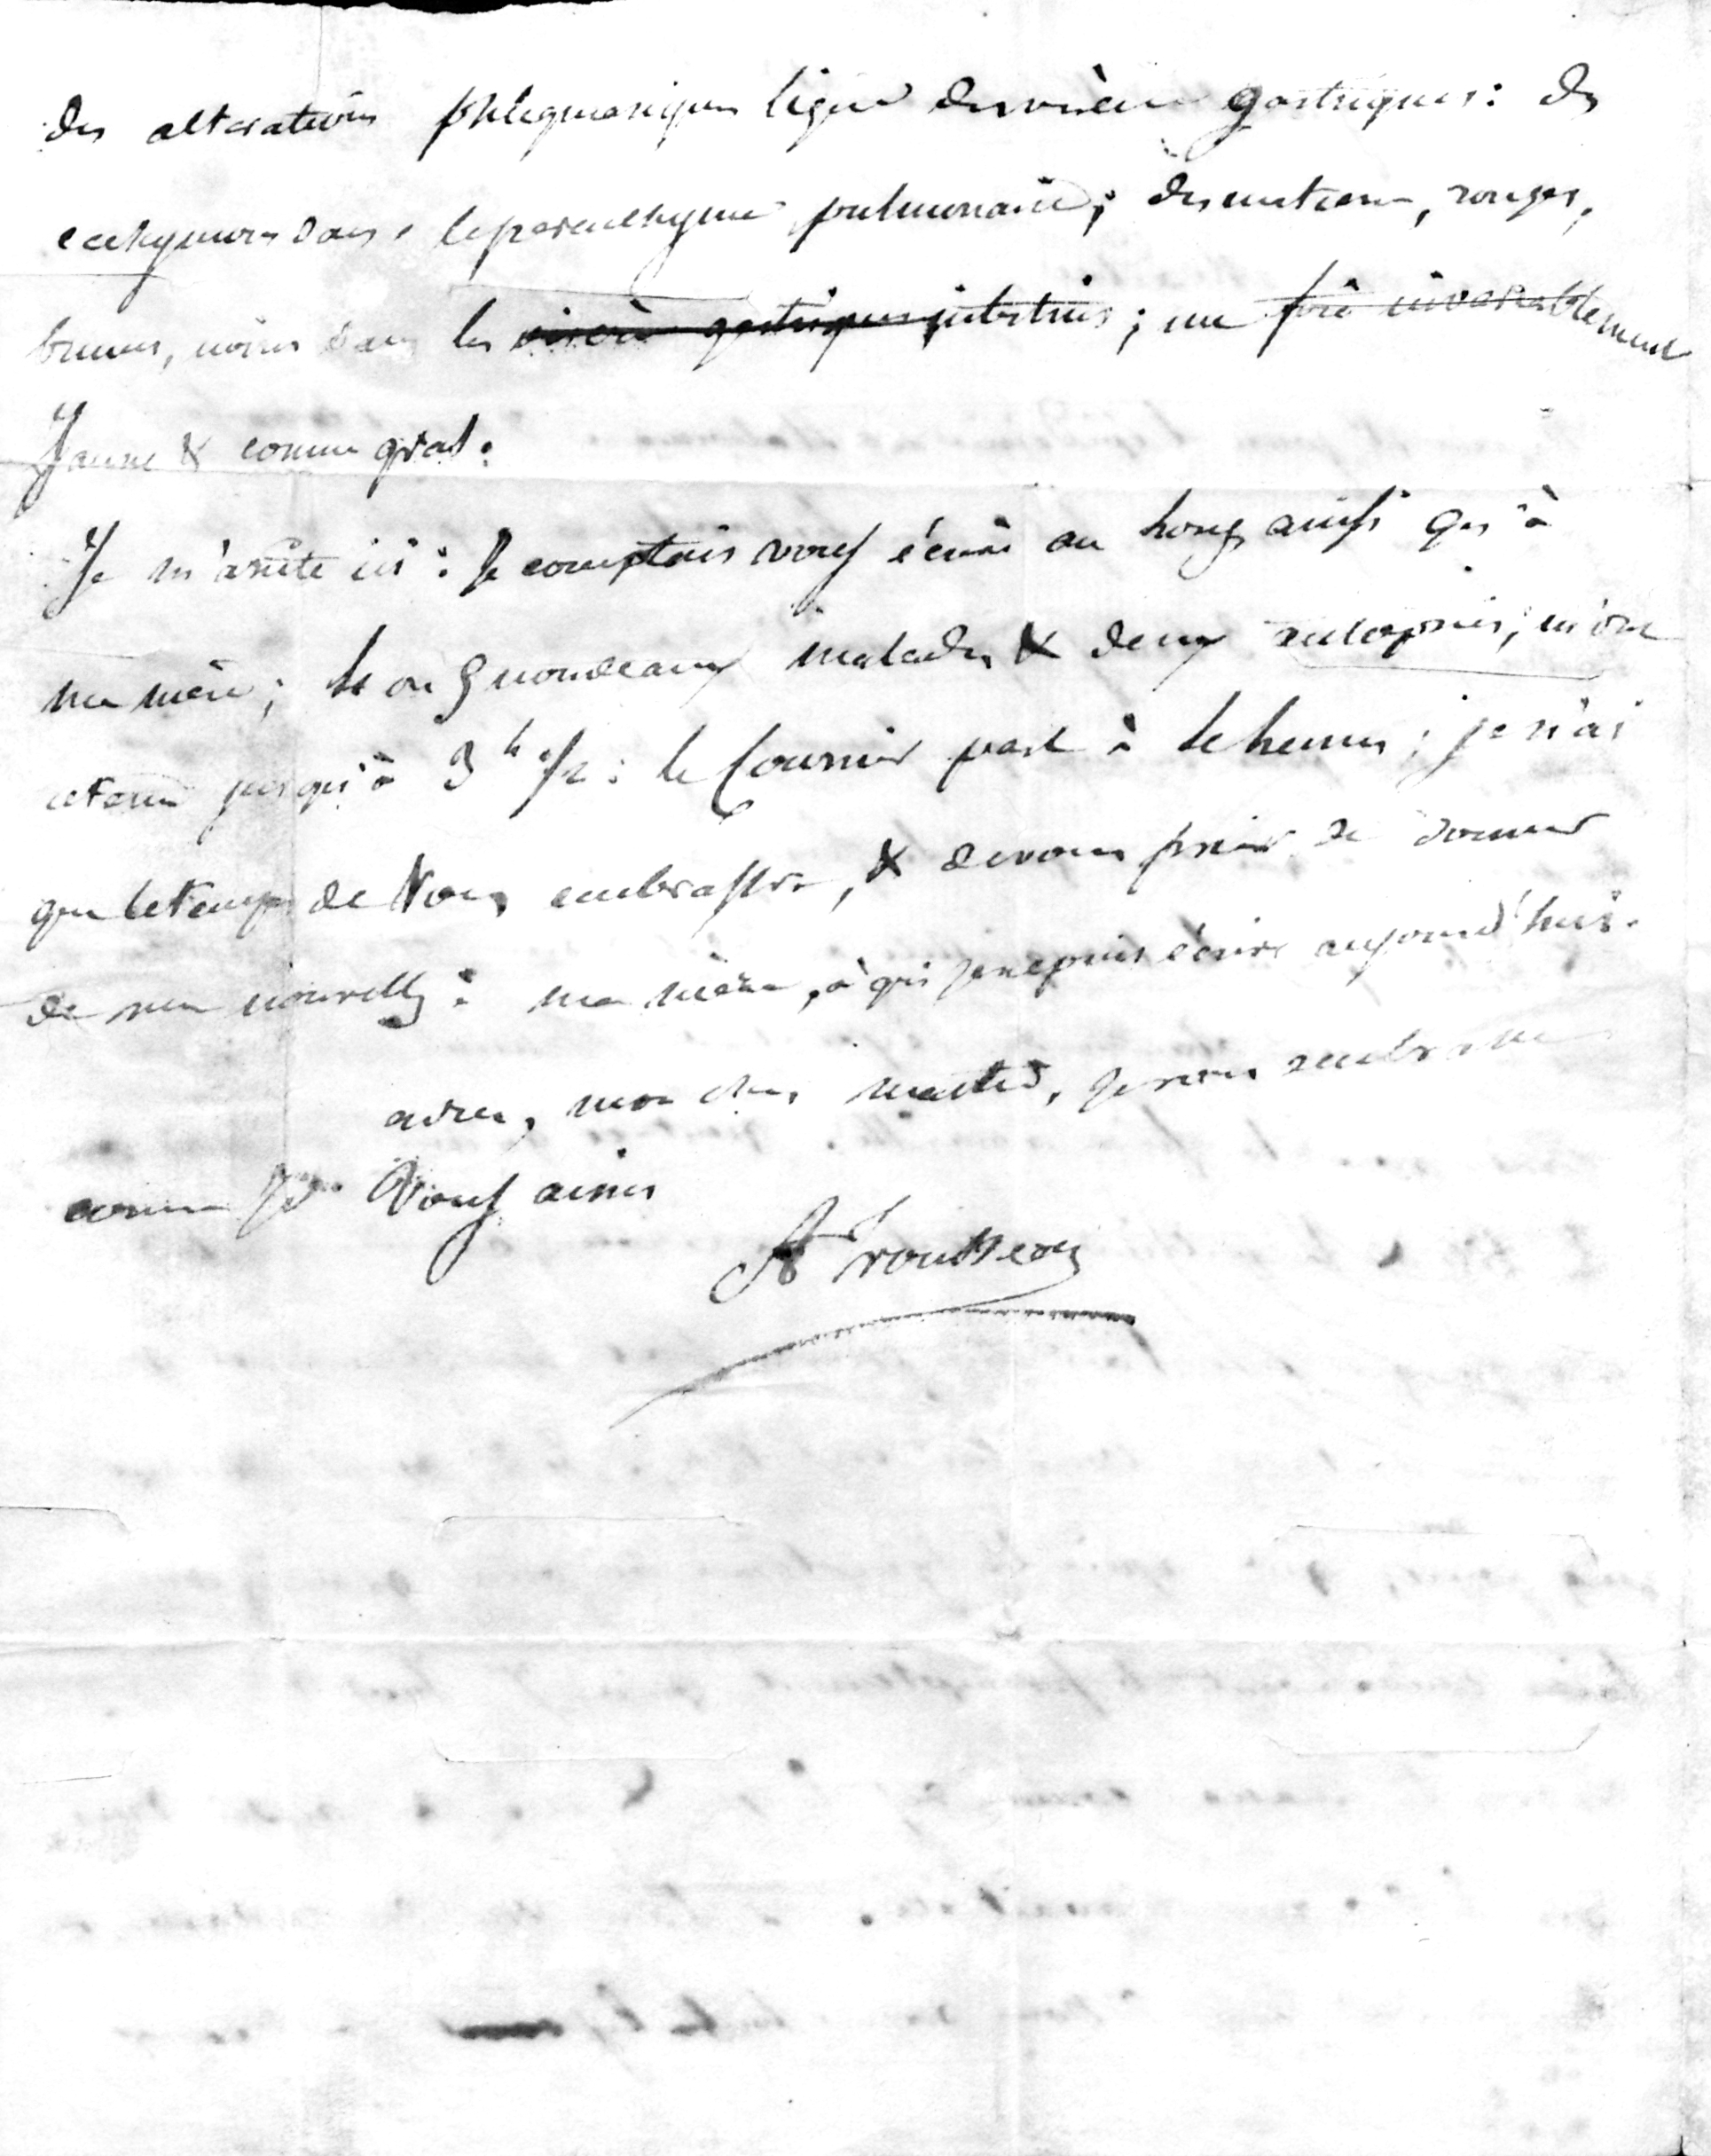 des alterations phlegmasiques légères des viscères gastriques: des
ecchymoses dans le parenchyme pulmonaire; des matieres, rouges,
brunes, noires dans les viscères gastriques intestins; un foie invariablement
Jaune & comme gras.
Je m'arrête ici: Je comptais vous écrire au long ainsi qu'à
ma mère; trois nouveaux malades & deux autopsies, m'ont
retenu jusqu'à 3h 1/2: le Courrier part à 4 heures; je n'ai
que le temps de Vous embrasser, & de vous prier de donner
de mes nouvelles à ma mère, à qui je ne puis écrire aujourd'hui.
adieu, mon cher maître, je vous embrasse
comme je Vous aime
A Trousseau